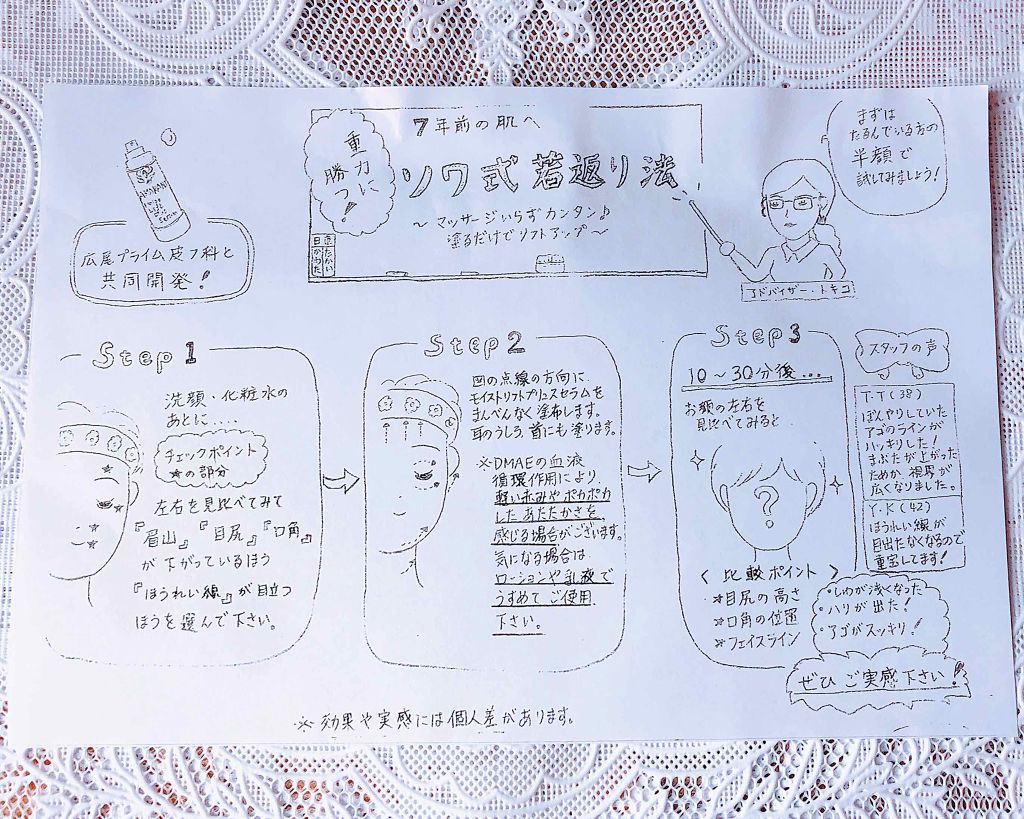 7年前の肌へ
重力に
勝つ!
ソワ式若返り法
~マッサージいらずカンタン♪
塗るだけでリフトアップ~
日かわた
まずは
たるんでいる方の
半顔で
試してみましょう!
アドバイザー・トキコ
広尾プライム皮フ科と
共同開発!
Step 1
洗顔・化粧水の
あとに....
チェックポイント
★の部分
左右を見比べてみて
『眉山』『目尻』『口角』
が下がっているほう
『ほうれい線』が目立つ
ほうを選んで下さい。
Step 2
図の点線の方向に
モイストリフトプリュスセラムを
まんべんなく塗布します。
耳のうしろ、首にも塗ります。
※DMAEの血液
循環作用により
軽い赤みやポカポカ
したあたたかさを
感じる場合がございます。
気になる場合は
ローションや乳液で
うすめてご使用
下さい。
Step 3
10~30分後...
お顔の左右を
見比べてみると
?
< 比較ポイント >
*目尻の高さ
*口角の位置
*フェイスライン
スタッフの声
T.T(38)
ぼんやりしていた
アゴのラインが
ハッキリした!
まぶたが上がった
ためか、視界が
広くなりました。
Y.K(42)
ほうれい線が
目立たなくなるので
重宝してます!
・しわが浅くなった
・ハリが出た!
・アゴがスッキリ!
ぜひご実感下さい!
※効果や実感には個人差があります。